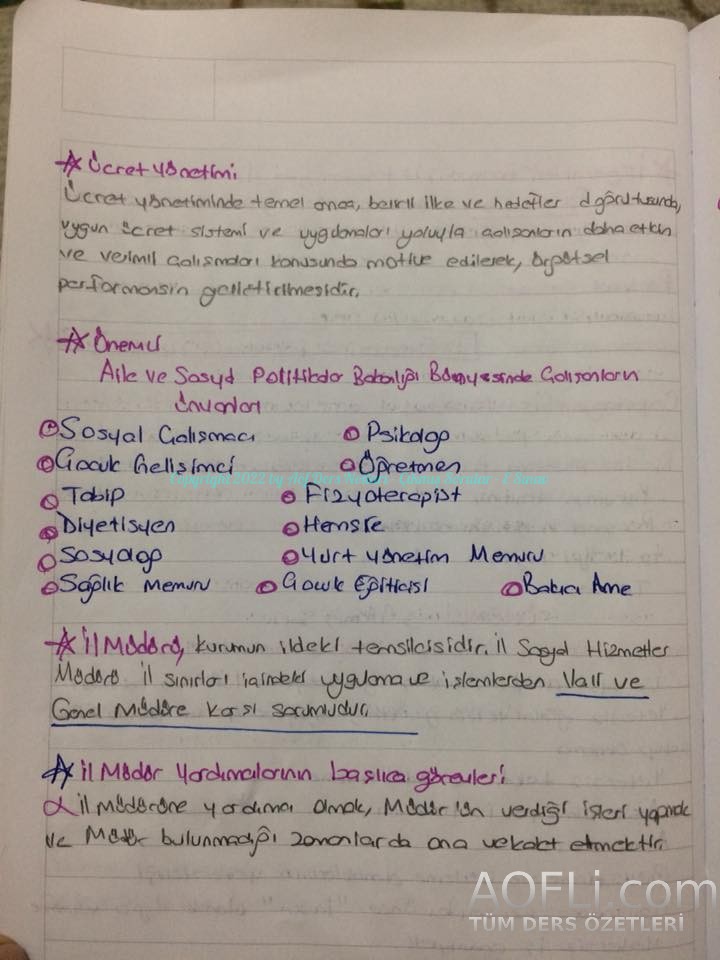 ☆ Ücret Yönetimi
Ücret yönetiminde temel amaç, belirli ilke ve hedefler doğrultusunda,
uygun ücret sistemi ve uygulamaları yoluyla çalışanların daha etkin
ve verimli çalışmaları konusunda motive edilerek, örgütsel
performansın geliştirilmesidir.
☆ Önemli
Aile ve Sosyal Politikalar Bakanlığı Bünyesinde Çalışanların
Ünvanları
Sosyal Çalışmacı Psikolog
Çocuk Gelişimci Öğretmen
Copyright 2022 by
Tabip Fizyoterapist
Diyetisyen Hemşire
Sosyolog Yurt Yönetim Memuru
Sağlık Memuru Çocuk Eğiticisi Bakıcı Anne
☆ İl Müdürü, kurumun ildeki temsilcisidir. İl Sosyal Hizmetler
Müdürü il sınırları içindeki uygulama ve işlemlerden Vali ve
Genel Müdüre karşı sorumludur.
☆ İl Müdür Yardımcılarının başlıca görevleri
İl müdürüne yardımcı olmak, Müdür'ün verdiği işleri yapmak
ve Müdür bulunmadığı zamanlarda ona vekalet etmektir.
AOFLi.com
TÜM DERS ÖZETLERİ